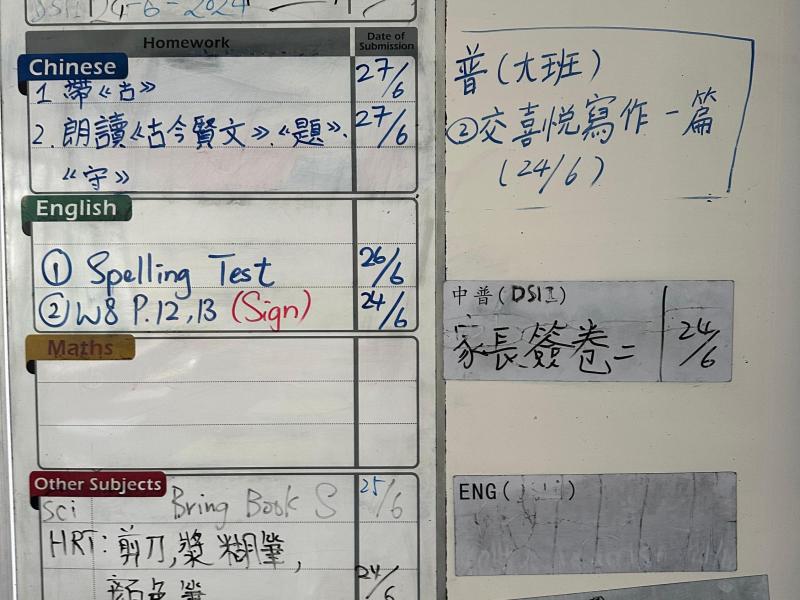 24-6-2024
Homework
Date of Submission
Chinese
1 帶《古》
27/6
2. 朗讀《古今賢文》.《題》.
27/6
《守》
English
① Spelling Test
26/6
② W8 P.12,13 (Sign)
24/6
Maths
Other Subjects
Sci Bring Book S
25/6
HRT: 剪刀,漿糊筆,
顏色筆
24/6
普(大班)
②交喜悅寫作一篇
(24/6)
中普(DSII)
家長簽卷二
24/6
ENG(
)